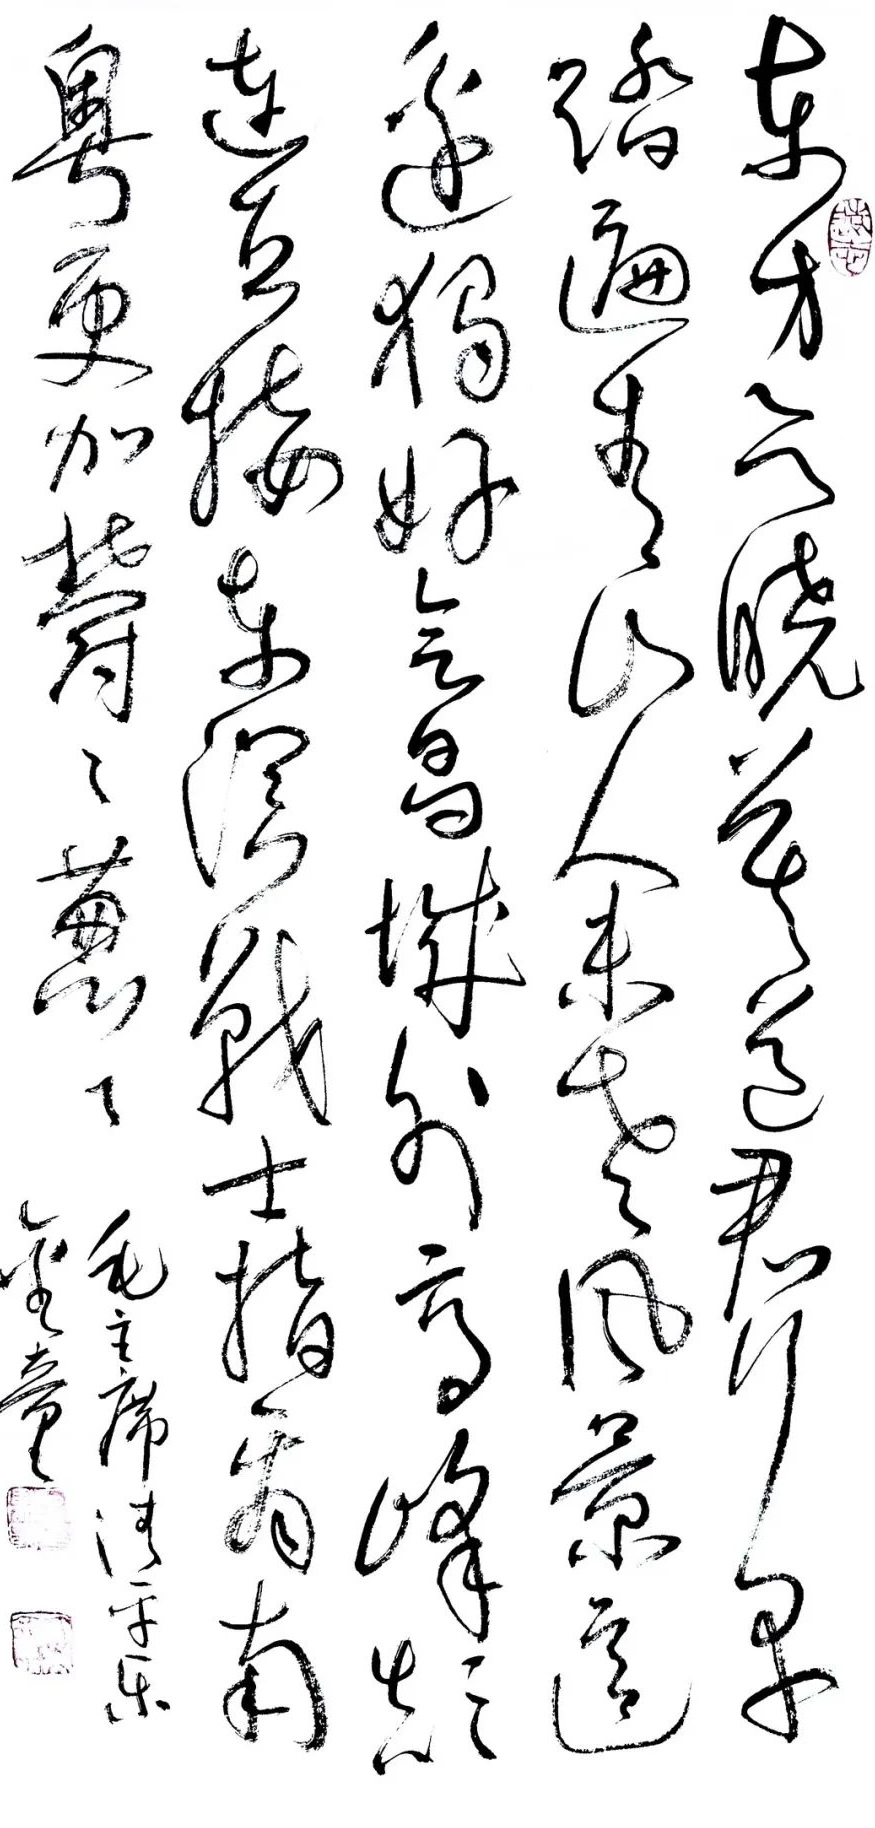 东方欲晓莫道君行早
踏遍青山人未老风景这
边独好会昌城外高峰颠
连直接东溟战士指看南
粤更加郁々葱々
毛主席清平乐